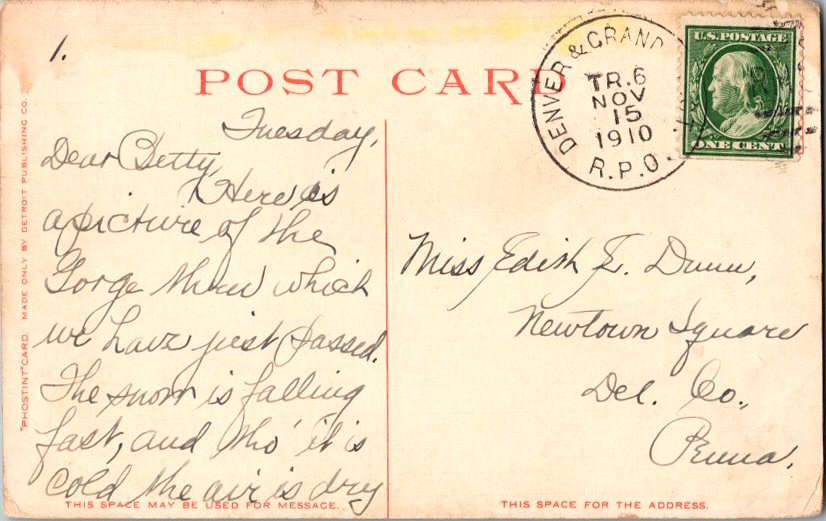 1.
POST CARD
DENVER & GRAND
TR.6
NOV
15
1910
R.P.O.
U.S. POSTAGE
ONE CENT
Tuesday,
Dear Betty,
Here is
a picture of the
Gorge thru which
we have just passed.
The snow is falling
fast, and tho' it is
cold the air is dry
Miss Edith E. Dunn,
Newtown Square
Del. Co.,
Penna.
"PHOSTINT" CARD MADE ONLY BY DETROIT PUBLISHING CO.
THIS SPACE MAY BE USED FOR MESSAGE.
THIS SPACE FOR THE ADDRESS.